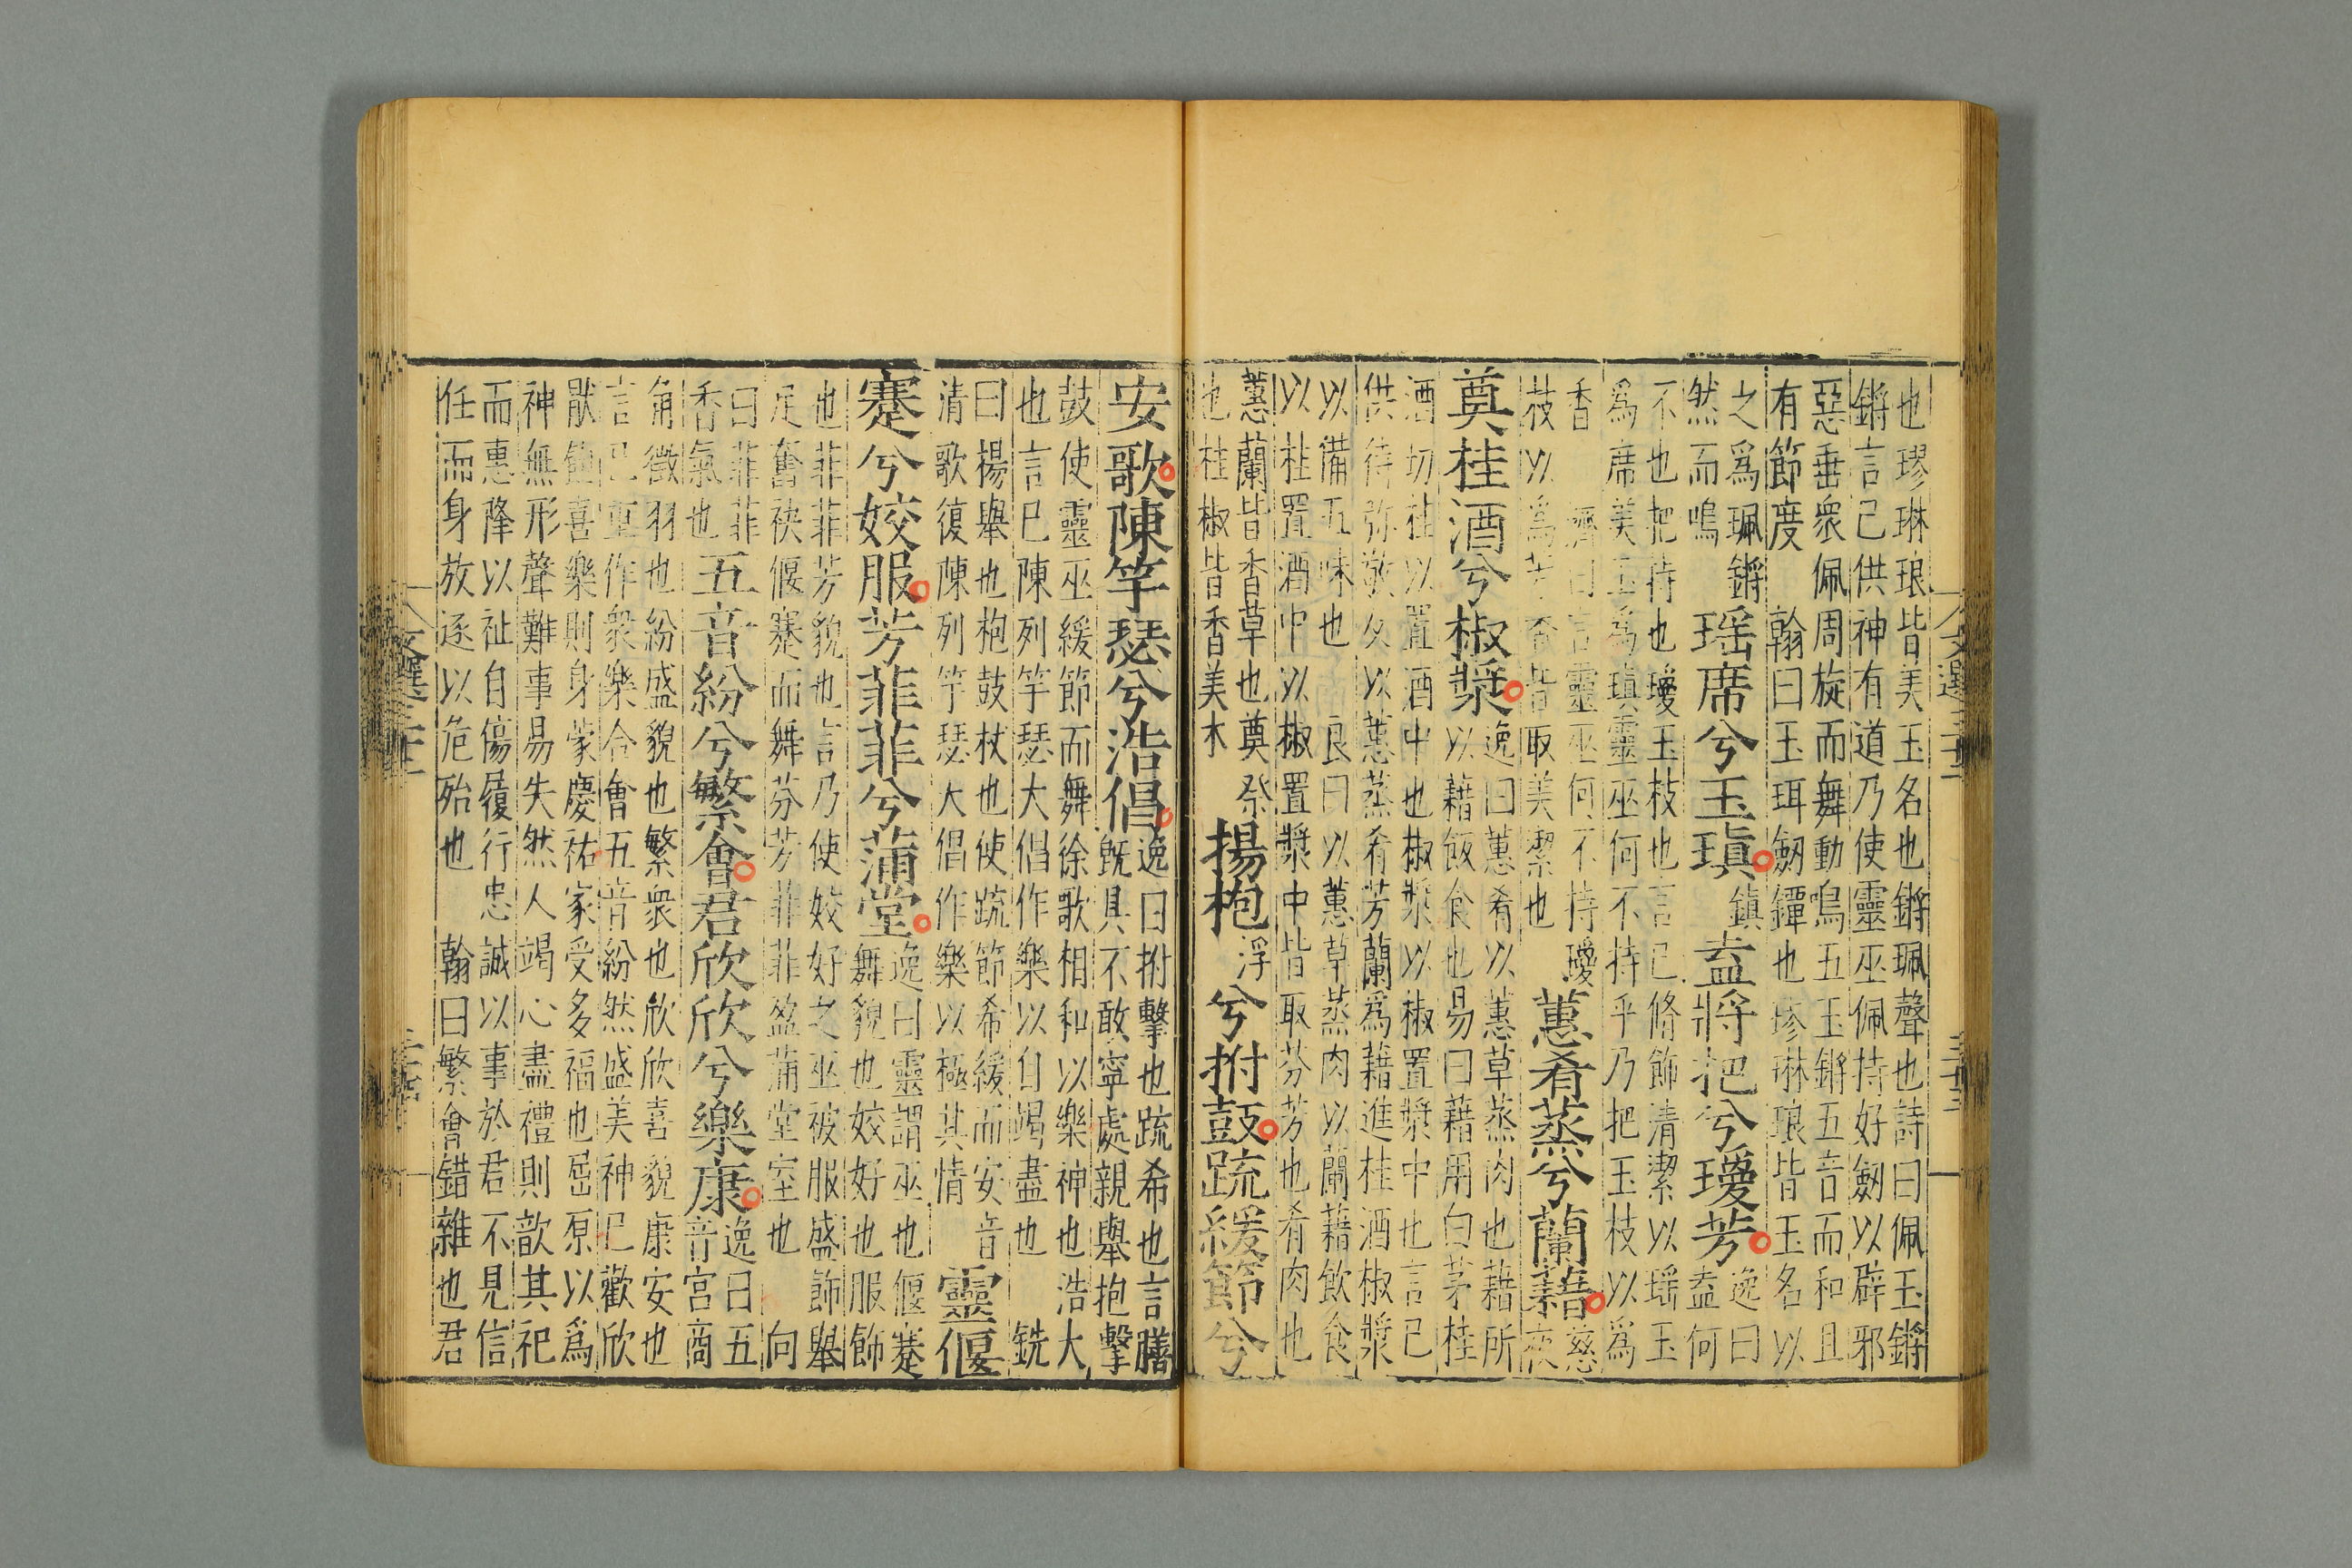 也璆琳琅皆美玉名也鏘珮聲也詩曰佩玉鏘
鏘言己供神有道乃使靈巫佩持好劒以辟邪
惡垂衆佩周旋而舞動鳴五玉鏘五音而和且
有節度　翰曰玉珥劒鐔也璆琳琅皆玉名以
之爲珮鏘
然而鳴
瑶席兮玉瑱鎮盍將把兮瓊芳
逸曰
盍何
不也把持也瓊玉枝也言己脩飾清潔以瑶玉
爲席美玉爲瑱靈巫何不持乎乃把玉枝以爲
香　濟曰言靈巫何不持瓊
枝以爲芳香皆取美潔也
蕙肴蒸兮蘭藉
慈
夜
奠桂酒兮椒漿
逸曰蕙肴以蕙草蒸肉也藉所
以藉飯食也易曰藉用白茅桂
酒切桂以置酒中也椒漿以椒置漿中也言己
供待弥敬以蕙蒸肴芳蘭爲藉進桂酒椒漿
以備五味也　良曰以蕙草蒸肉以蘭藉飲食
以桂置酒中以椒置漿中皆取芬芳也肴肉也
蕙蘭皆香草也奠祭
也桂椒皆香美木
揚枹浮兮拊鼓疏緩節兮
安歌陳竽瑟兮浩倡
逸曰拊擊也疏希也言膳
旣具不敢寧處親舉抱擊
鼓使靈巫緩節而舞徐歌相和以樂神也浩大
也言已陳列竽瑟大倡作樂以自竭盡也　銑
曰楊舉也枹鼓杖也使疏節希緩而安音
清歌復陳列竽瑟大倡作樂以極其情
靈偃
蹇兮姣服芳菲菲兮蒲堂
逸曰靈謂巫也偃蹇
舞貌也姣好也服飾
也菲菲芳貌也言乃使姣好之巫被服盛飾舉
足奮袂偃蹇而舞芬芳菲菲盈蒲堂室也　向
曰菲菲
香氣也
五音紛兮繁會君欣欣兮樂康
逸曰五
音宮商
角徵羽也紛盛貌也繁衆也欣欣喜貌康安也
言已重作衆樂合會五音紛然盛美神巳歡欣
猒飽喜樂則身蒙慶祐家受多福也屈原以爲
神無形聲難事易失然人竭心盡禮則歆其祀
而惠降以祉自傷履行忠誠以事於君不見信
任而身放逐以危殆也　翰曰繁會錯雜也君